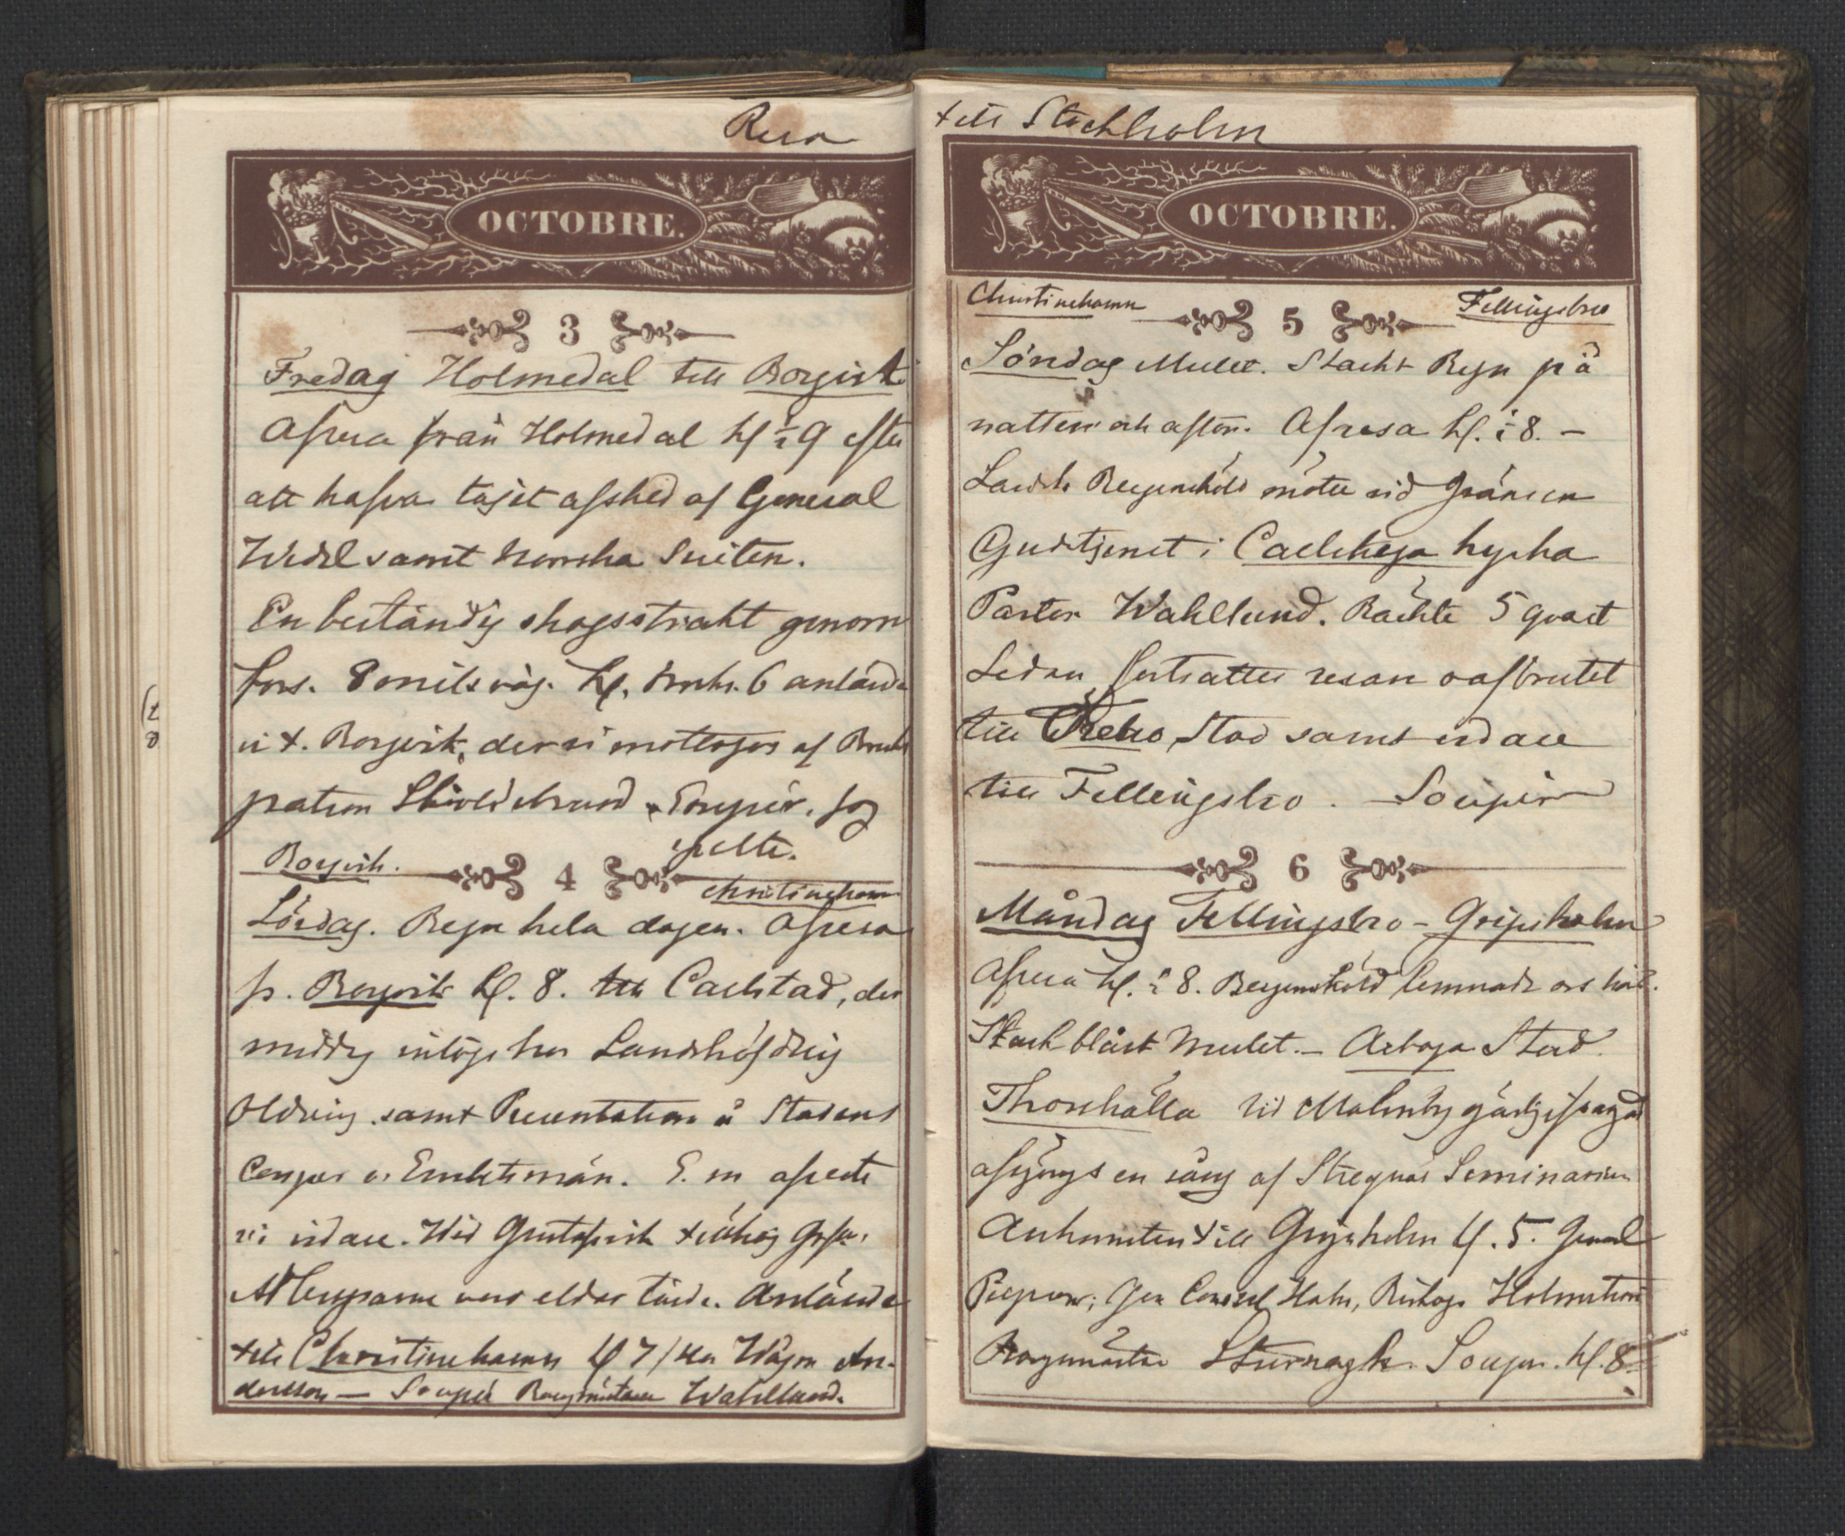 Resa
OCTOBRE.
3
Fredag Holmedal till Borgvik
Afresa från Holmedal kl ½ 9 efter
att hafva tagit afsked af General
Wedel samt Norska Suiten.
En beständig skogstrakt genom
fors. 8 mils väg. Kl. omkr. 6 anlände
vi t. Borgvik, der vi mottogos af Bruks
patron Skiöldebrand. Soupér. Jag
spelte.
Borgvik.
4
Christinehamn
Lördag. Regn hela dagen. Afresa
fr. Borgvik kl. 8. till Carlstad, der
middag intogs hos Landshöfding
Oldevig samt Presentation å Stadens
Corpser o. Embetsmän. E. m afreste
vi vidare. Wid Gustafsvik
voro eldar tända. Anlände
till Christinehamn kl 7 / Wågm An-
dersson — Soupér Borgmästare Wahllund.
till Stockholm
OCTOBRE.
Christinehamn
5
Fellingsbro
Söndag Mulet. Starkt Regn på
natten och afton. Afresa kl. ½ 8. —
Landsh Bergenskiöld mötte vid gränsen
Gudstjenst i Carlskoga kyrka
Pastor Wahllund. Räckte 5 qvart
Sedan fortsattes resan oafbrutet
till Örebro Stad samt vidare
till Fellingsbro. — Soupér
6
Måndag Fellingsbro — Gripsholm
Afresa kl. ½ 8. Bergenskiöld lemnade oss här.
Stark blåst Mulet. — Arboga Stad.
Thorshälla Vid Malmby gästgifvaregård
afsjöngs en sång af Stregnäs Seminarium
Ankomsten till Gripsholm kl. 5. General
Peyron, Gen Consul Hahn, Biskop Holmström
Borgmästare Soupér. kl. 8.